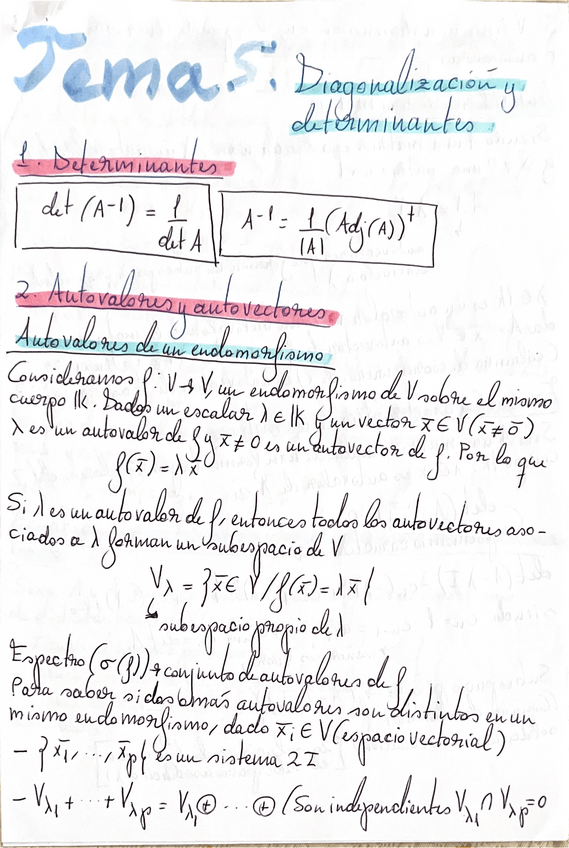 Tema 5: Diagonalización y
determinantes
1. Determinantes
det (A-1) = 1/det A
A^-1 = 1/|A| (Adj(A))^t
2. Autovalores y autovectores
Autovalores de un endomorfismo
Consideramos f: V → V, un endomorfismo de V sobre el mismo
cuerpo K. Dados un escalar λ ∈ K y un vector x̄ ∈ V (x̄ ≠ ō)
λ es un autovalor de f y x̄ ≠ 0 es un autovector de f. Por lo que
f(x̄) = λ x̄
Si λ es un autovalor de f, entonces todos los autovectores aso-
ciados a λ forman un subespacio de V
Vλ = {x̄ ∈ V / f(x̄) = λ x̄}
subespacio propio de λ
Espectro (σ(f)) → conjunto de autovalores de f
Para saber si dos o más autovalores son distintos en un
mismo endomorfismo, dado x̄i ∈ V (espacio vectorial)
- {x̄1, ..., x̄p} es un sistema LI
- Vλ1 + ... + Vλp = Vλ1 ⊕ ... ⊕ (Son independientes Vλ1 ∩ Vλp = 0